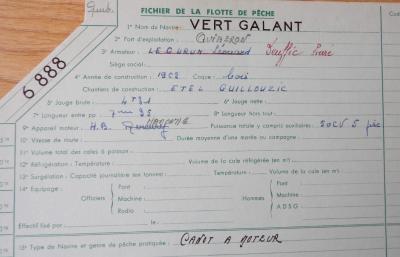 Quib.
FICHIER DE LA FLOTTE DE PÊCHE
6888
1° Nom du Navire: VERT GALANT
2° Port d'exploitation: QUIBERON
3° Armateur: LE GURUN Léonard
Siège social:
4° Année de construction: 1962 Coque: bois
Chantiers de construction: ETEL GUILLOUZIC
5° Jauge brute: 6° Jauge nette:
7° Longueur entre pp 8° Longueur hors tout:
9° Appareil moteur: H.B. Puissance totale y compris auxiliaires: 20CV
10° Vitesse de route: Durée moyenne d'une marée ou campagne:
11° Volume total des cales à poisson:
12° Réfrigération: Température: Volume de la cale réfrigérée (en m³):
13° Surgélation: Capacité journalière (en tonnes): Température: Volume de la cale (en m³):
14° Equipage: Pont: Pont:
Officiers Machine: Hommes Machine:
Radio: A D S G:
Effectif fixé par le
15° Type de Navire et genre de pêche pratiquée: CANOT A MOTEUR